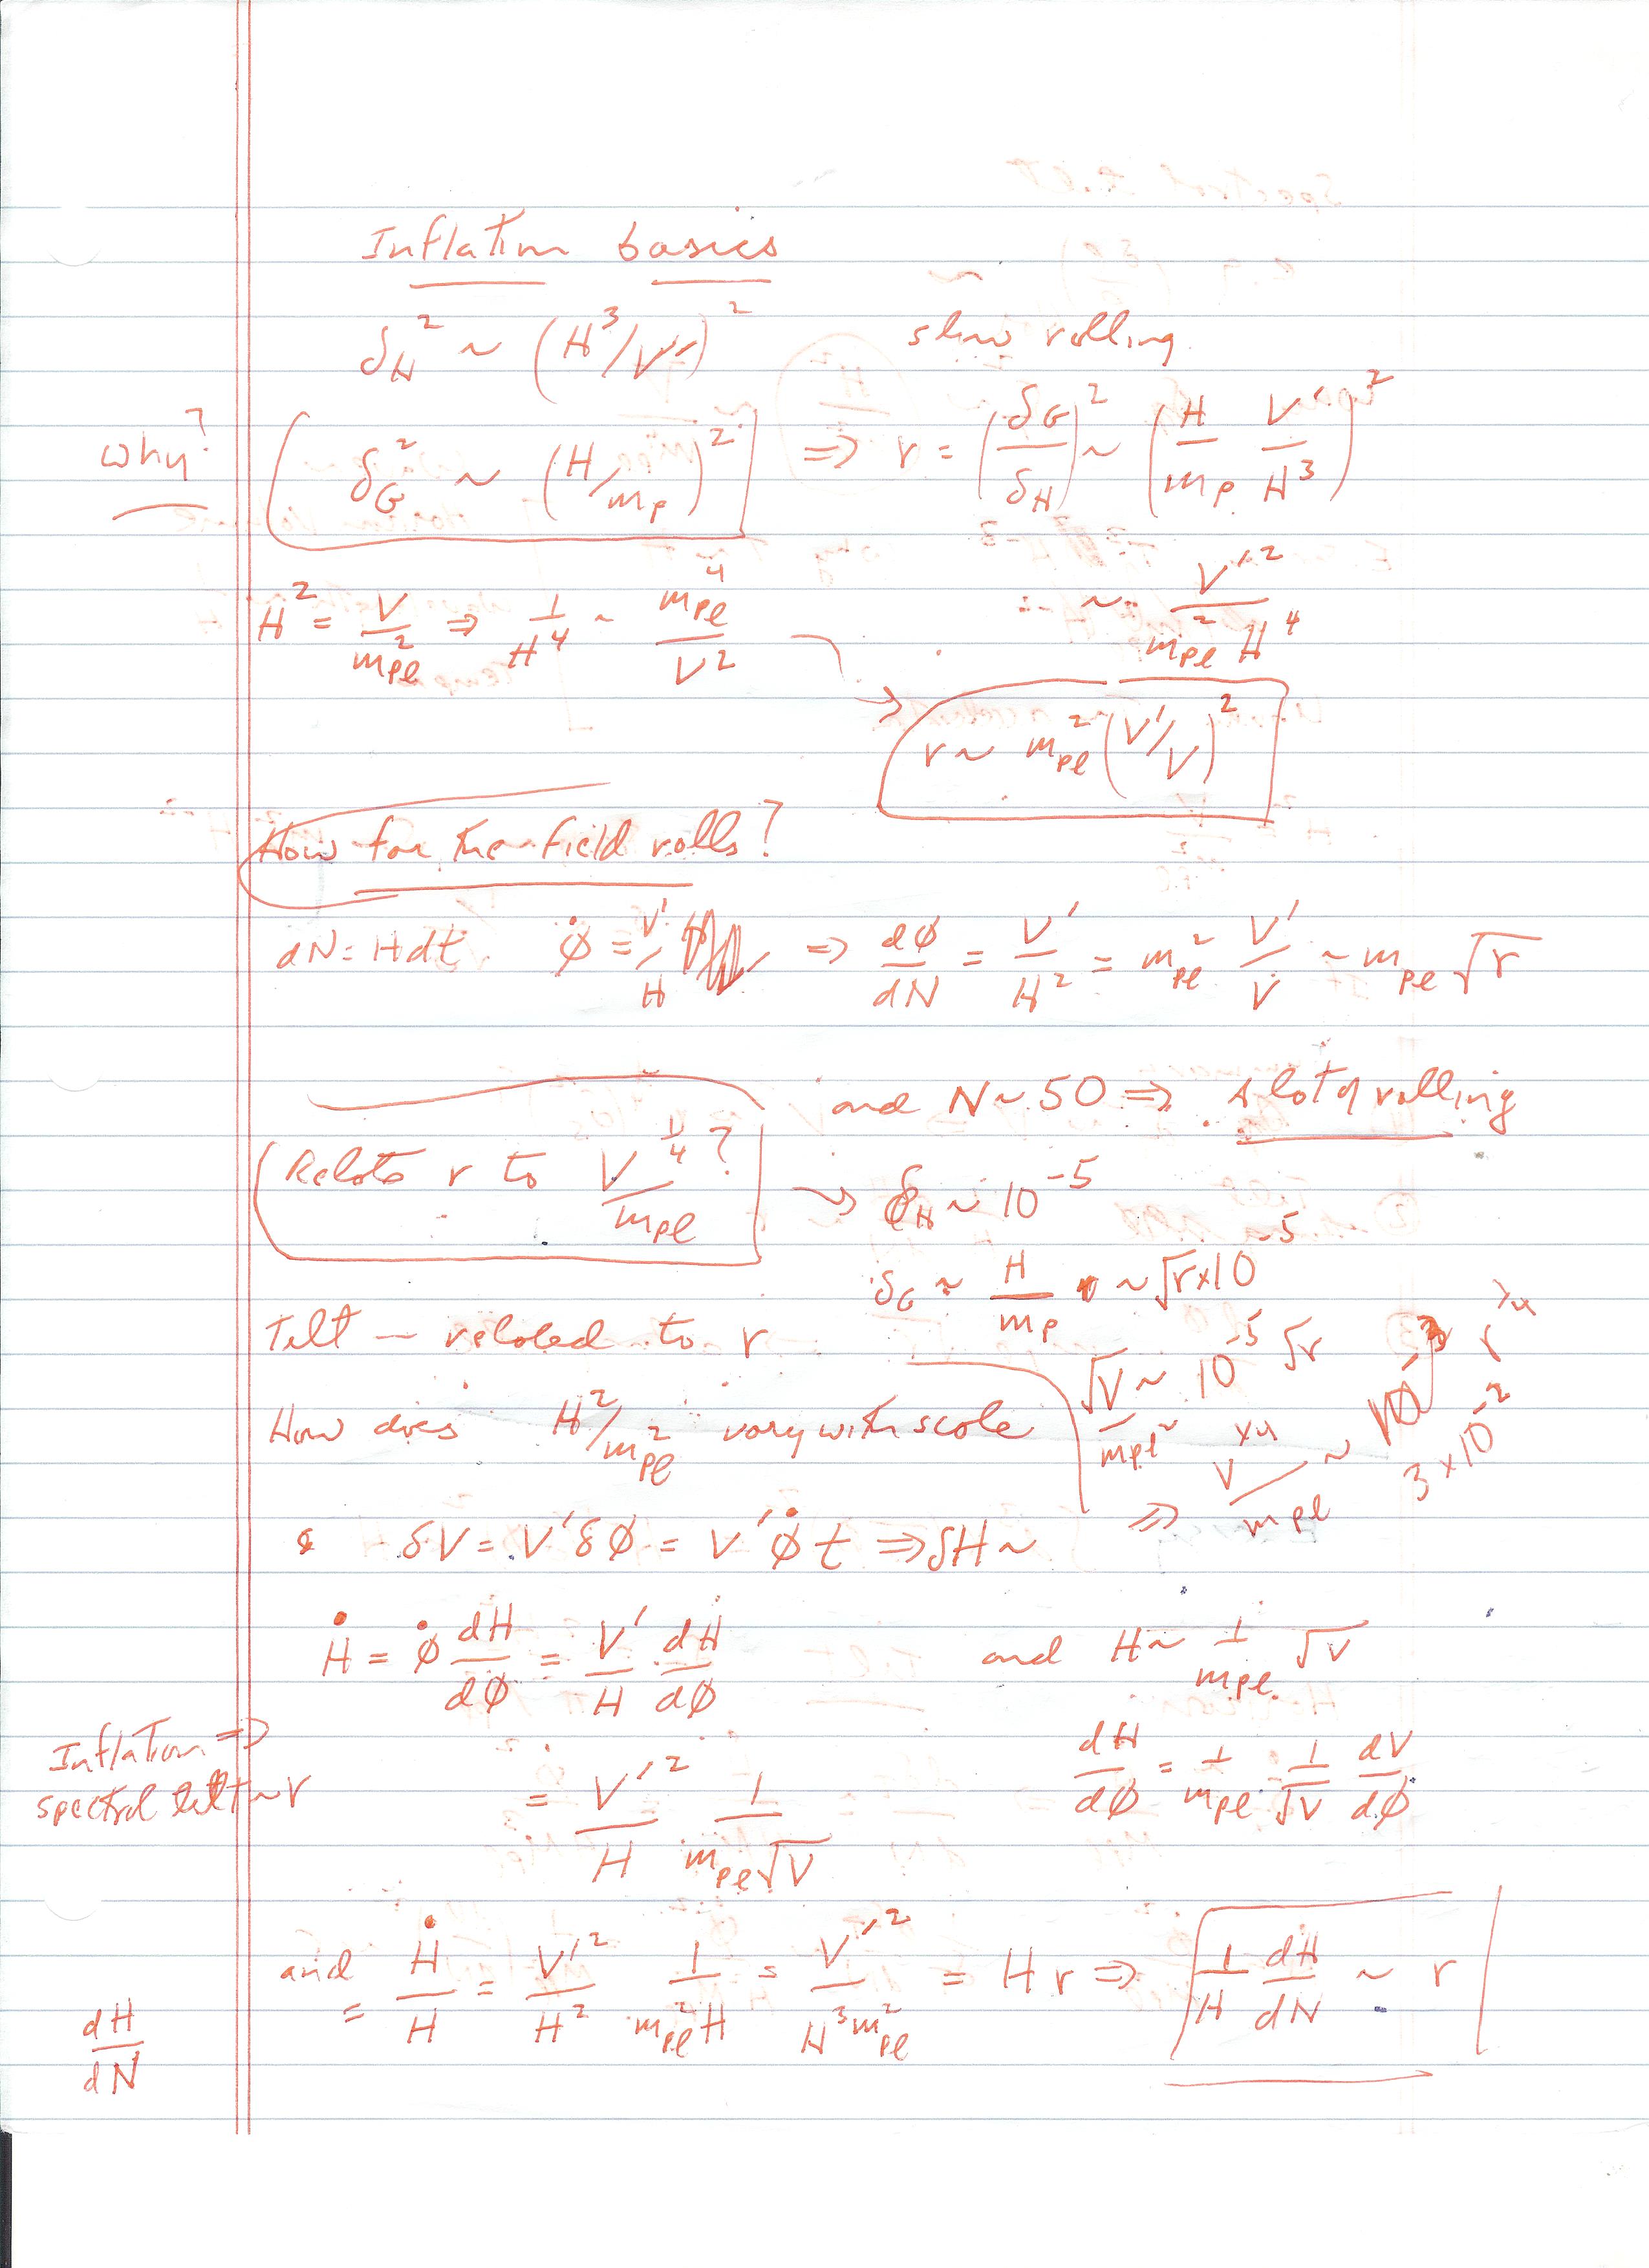 Inflation basics
δ_H^2 ~ (H^3/V')^2 slow rolling
why? δ_G^2 ~ (H/m_p)^2 ⇒ r = (δ_G/δ_H)^2 ~ (H/m_p V'/H^3)^2
H^2 = V/m_pl^2 ⇒ 1/H^4 ~ m_pl^4/V^2 ~ V'^2/(m_pl^2 H^4)
→ r ~ m_pl^2 (V'/V)^2
How far the field rolls?
dN = Hdt φ̇ = V'/H ⇒ dφ/dN = V'/H^2 = m_pl^2 V'/V ~ m_pl √r
and N ~ 50 ⇒ A lot of rolling
Relate r to V^1/4/m_pl ? → δ_H ~ 10^-5
δ_G ~ H/m_p ~ √r × 10^-5
Tilt — related to r
√V/m_pl^2 ~ 10^-5 √r
How does H^2/m_pl^2 vary with scale
⇒ V^1/4/m_pl ~ 3 × 10^-2 r^1/4
δV = V'δφ = V'φ̇ t ⇒ δH ~
Ḣ = φ̇ dH/dφ = V'/H dH/dφ and H ~ 1/m_pl √V
Inflation ⇒
spectral tilt ~ r
= V'^2/H 1/(m_pl √V) dH/dφ = 1/m_pl 1/√V dV/dφ
and Ḣ/H = V'^2/H^2 1/(m_pl^2 H) = V'^2/(H^3 m_pl^2) = H r ⇒ 1/H dH/dN ~ r
dH/dN =